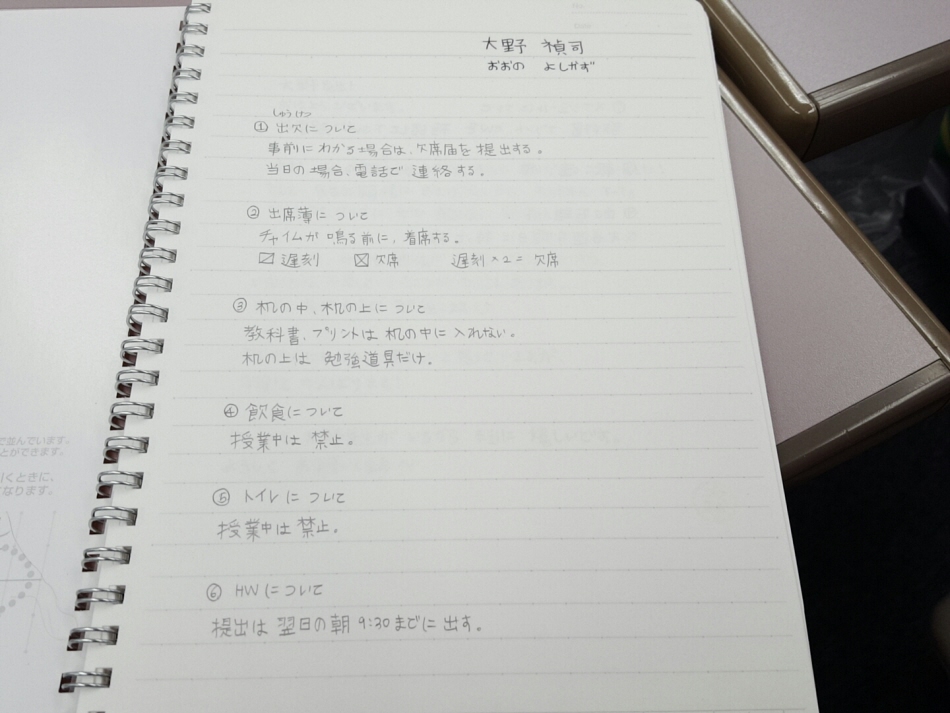 大野 禎司
おおの よしかず
しゅうけつ
① 出欠について
事前にわかる場合は、欠席届を提出する。
当日の場合、電話で連絡する。
② 出席簿について
チャイムが鳴る前に、着席する。
〼 遅刻 ☒ 欠席 遅刻×2=欠席
③ 机の中、机の上について
教科書、プリントは机の中に入れない。
机の上は勉強道具だけ。
④ 飲食について
授業中は禁止。
⑤ トイレについて
授業中は禁止。
⑥ HWについて
提出は翌日の朝9:30までに出す。
で並んでいます。
とができます。
引くときに、
なります。